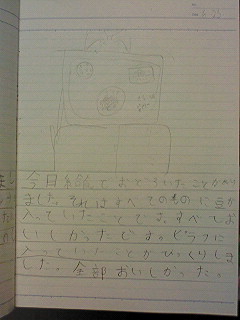 今日給食でおどろいたことがあり
ました。それはすべてのものに豆が
入っていたことです。すべてお
いしかったです。ピラフに
入っていたことがびっくりしま
した。全部おいしかった。